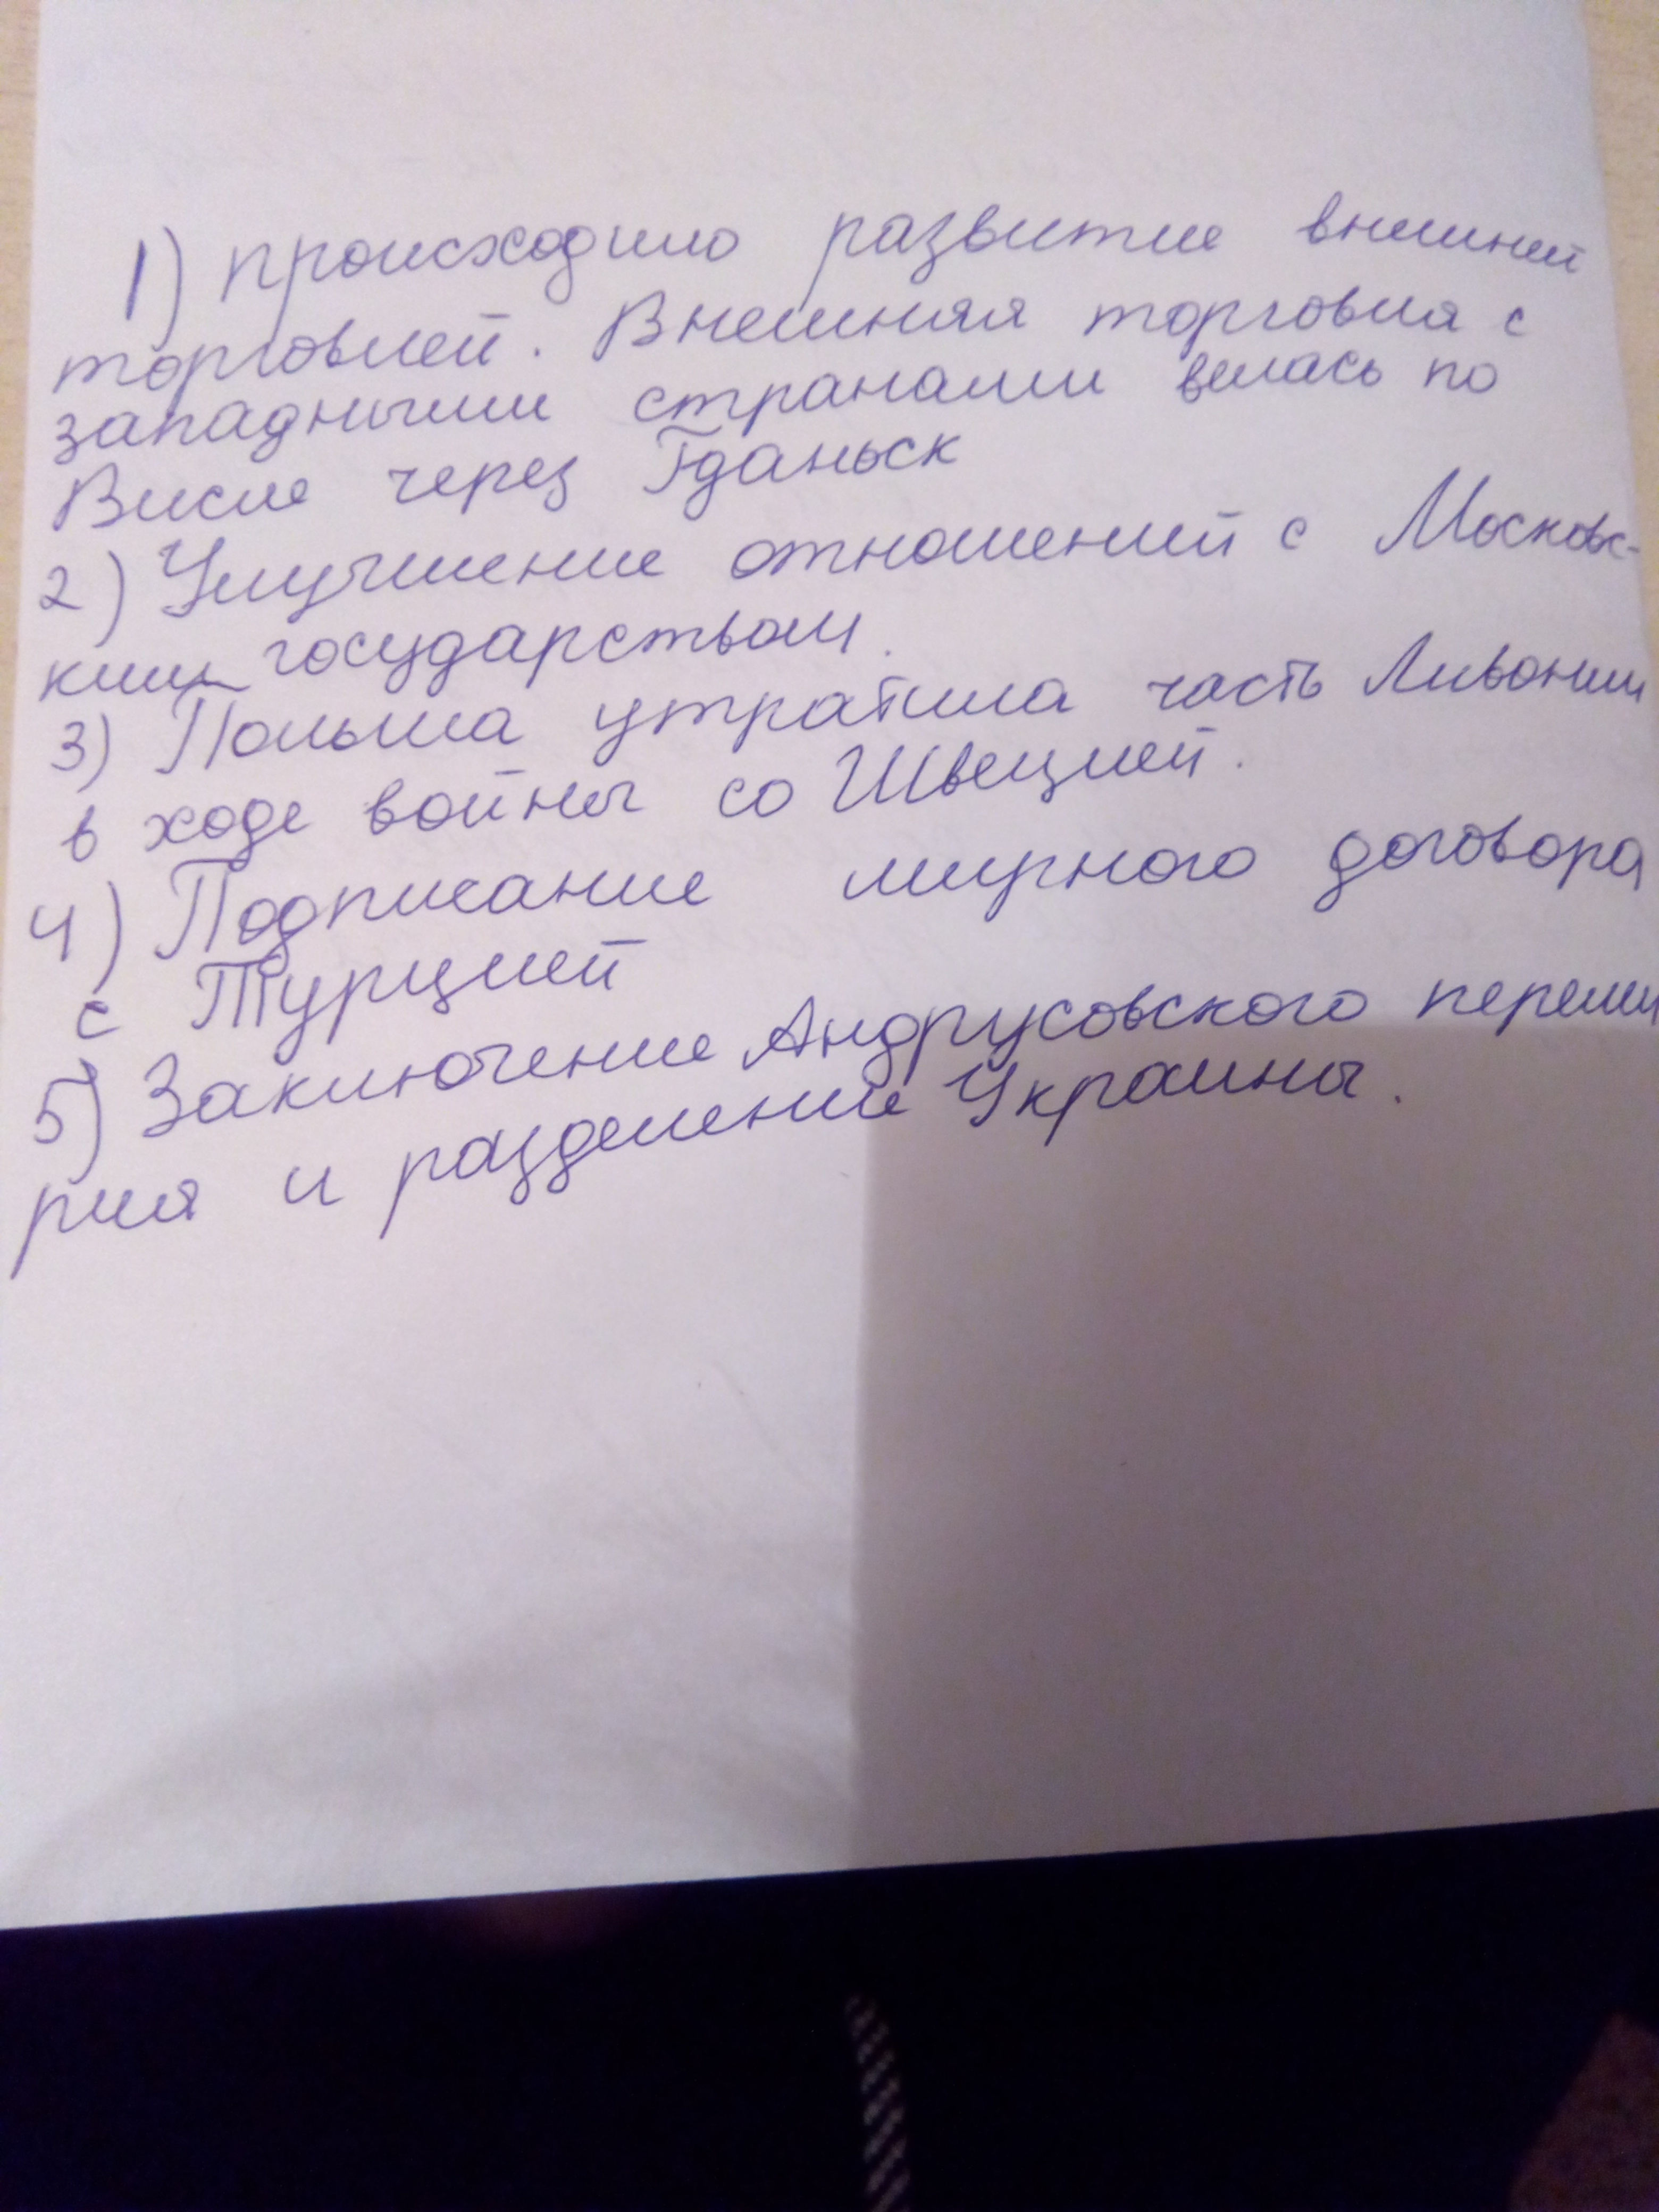 1) происходило развитие внешней
торговлей. Внешняя торговля с
западными странами велась по
Висле через Гданьск
2) Улучшение отношений с Московс-
ким государством.
3) Польша утратила часть Ливонии
в ходе войны со Швецией.
4) Подписание мирного договора
с Турцией
5) Заключение Андрусовского переми
рия и разделение Украины.